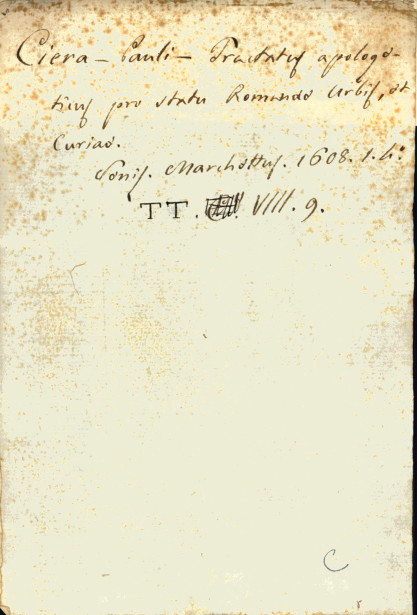 Ciera – Pauli – Tractatus apologe-
ticus pro statu Romanae Urbis, et
Curiae.
Marchettus. 1608. 1. 4.º
TT. VIII. 9.
C